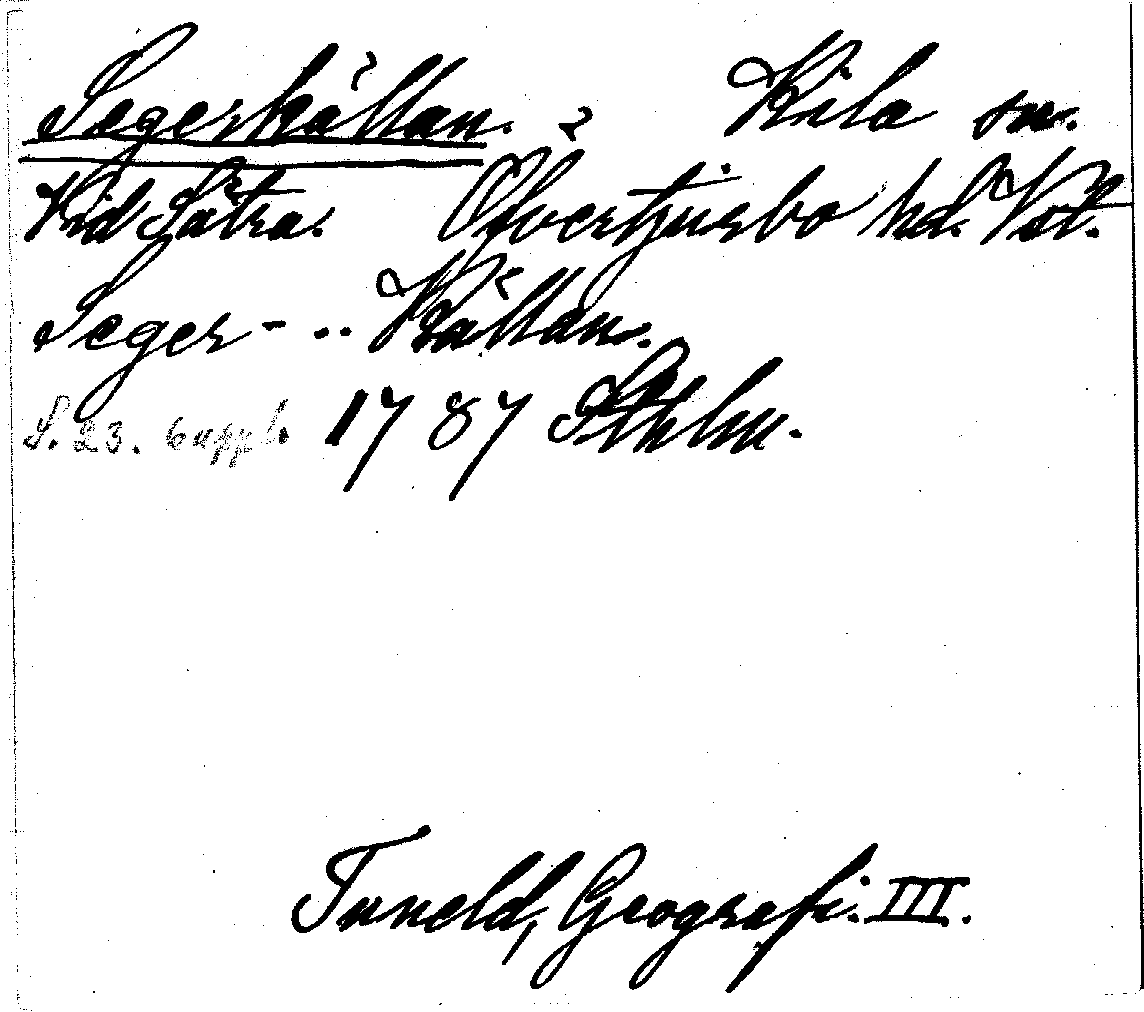 Segerkällan. Kila sn.
Vid Sätra. Öfvertjurbo hd. Vstl.
Seger- .. Källan.
S. 23. suppl. 1787 Sthlm.
Tuneld, Geografi. III.